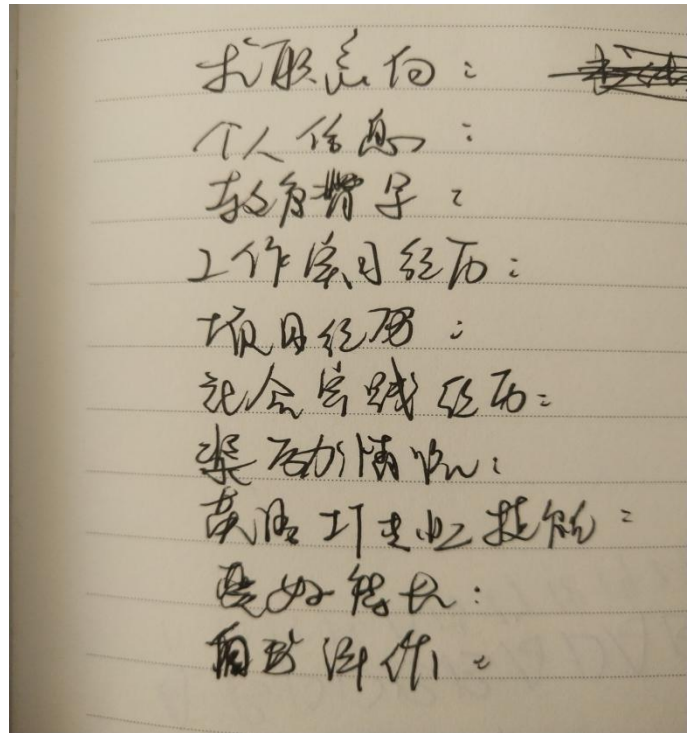 求职意向：
个人信息：
教育背景：
工作实习经历：
项目经历：
社会实践经历：
奖励情况：
英语IT专业技能：
爱好特长：
自我评价：